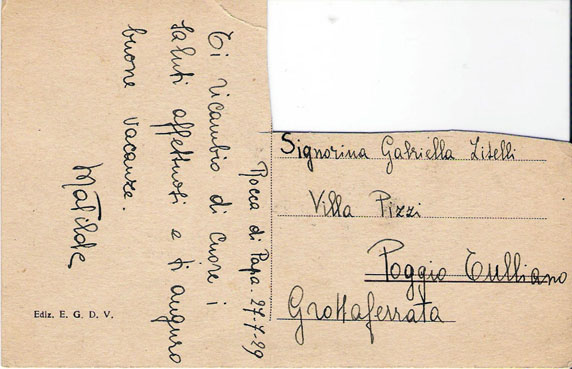 Rocca di Papa 27-7-29
Ti ricambio di cuore i
saluti affettuosi e ti auguro
buone vacanze.
Matilde
Ediz. E. G. D. V.
Signorina Gabriella Litelli
Villa Pizzi
Poggio Tulliano
Grottaferrata